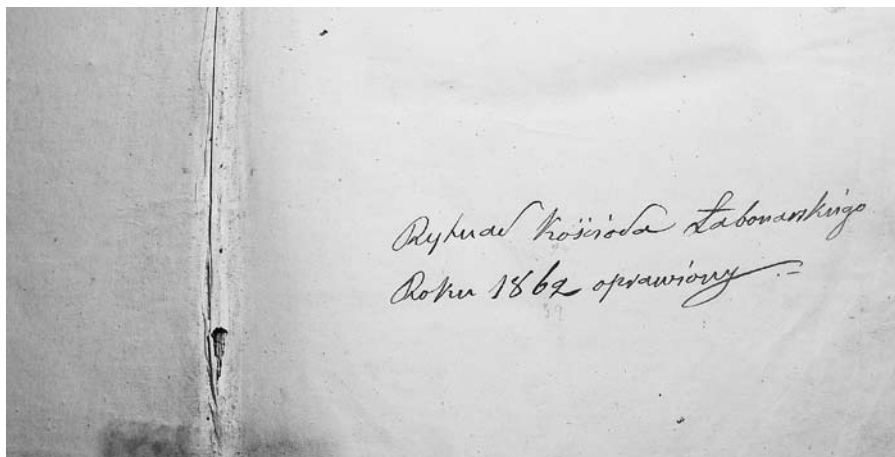 Rytuał Kościoła Łabonarskiego
Roku 1862 oprawiony